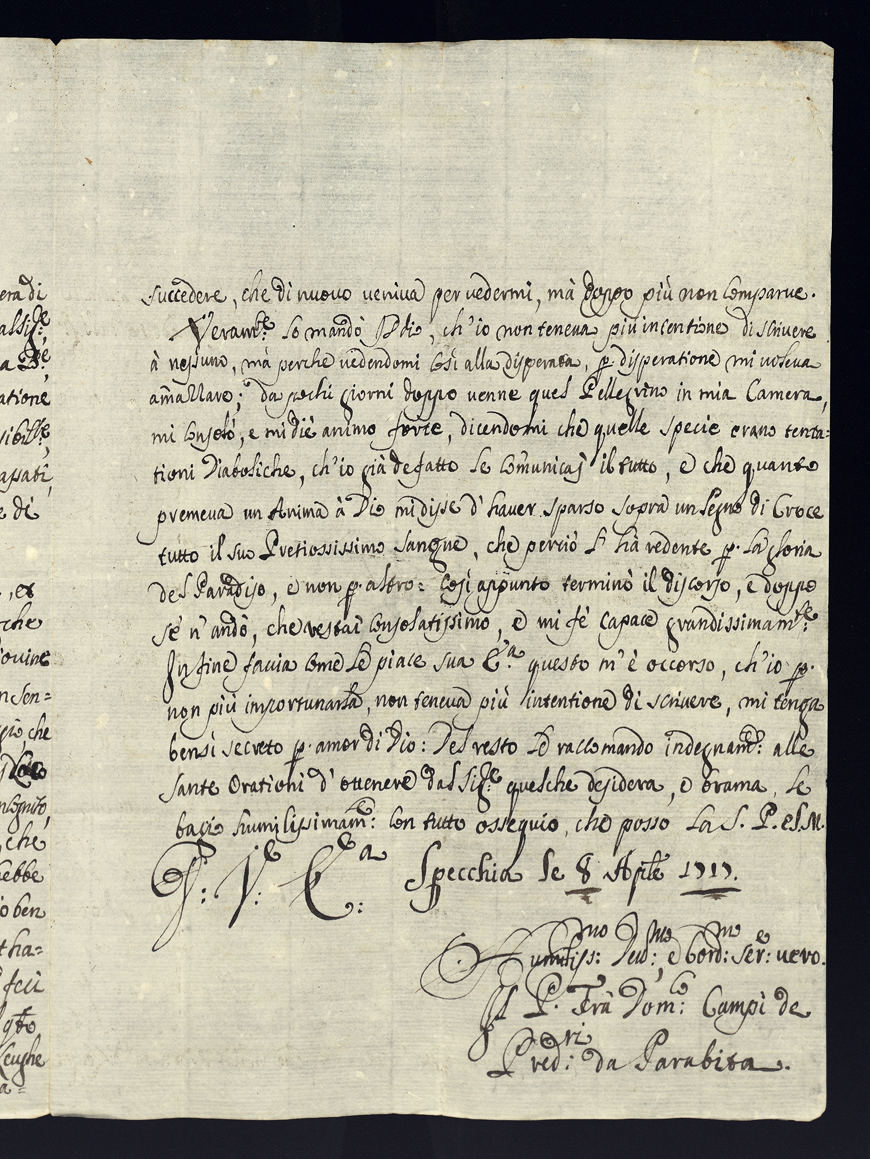 succedere, che di nuovo veniva per vedermi, mà doppo più non comparve.
Veram:te lo mandò Iddio, ch'io non teneva più intentione di scrivere
à nessuno, mà perche vedendomi così alla disperata, p. disperatione mi voleva
amazzare; da pochi giorni doppo venne quel Pellegrino in mia Camera,
mi consolò, e mi diè animo forte, dicendomi che quelle specie erano tenta=
tioni Diaboliche, ch'io già de fatto le comunicaj il tutto, e che quanto
premeva un Anima à Dio mi disse d'haver sparso sopra un legno di Croce
tutto il suo Pretiossissimo sangue, che perciò l'hà redente p. la gloria
del Paradiso, e non p. altro: così appunto terminò il discorso, e doppo
sè n'andò, che restai consolatissimo, e mi fè capace grandissimam:te
In fine facia come Le piace sua E:a questo m'è occorso, ch'io p.
non più importunarla, non teneva più intentione di scrivere, mi tenga
bensì secreto p. amor di Dio: Del resto Le raccomando indegnam:te alle
sante Orationi d'ottenere dal Sig:re quelche desidera, e brama, le
bacio humilissimam:te con tutto ossequio, che posso La S. P. e S. M.
D: V: E:a Specchia le 8 Aprle 1717.
Humiliss:mo Dev:mo, e Obord:mo ser:e vero.
Il P. Frà Dom:co Campi de
Pred:ri da Parabita.
era di
atione
e di
, et
rche
iovine
n sen=
gio che
ncognito,
, che
rebbe
io ben
t ha=
feci
qto
a=